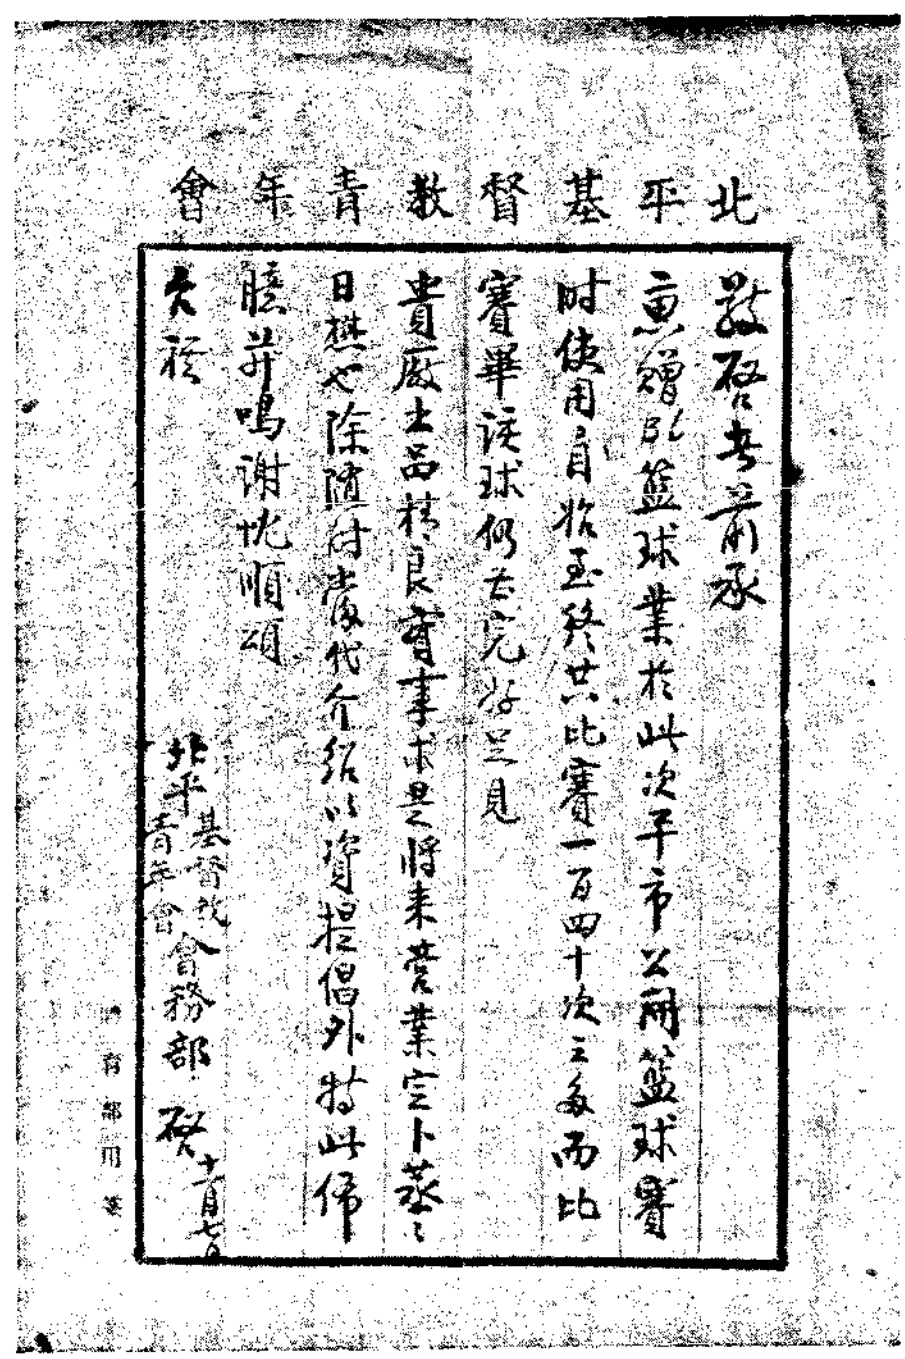 北平基督教青年會
敬啓者前承
惠贈BL籃球業於此次平市公開籃球賽
時使用自始至終共比賽一百四十次之多而比
賽畢該球仍甚完好足見
貴廠出品精良實事求是將來營業定卜蒸々
日懋也除隨時當代介紹以資提倡外特此佈
臆並鳴謝忱順頌
大祺
北平基督教青年會會務部啓
十一月七日
部用箋